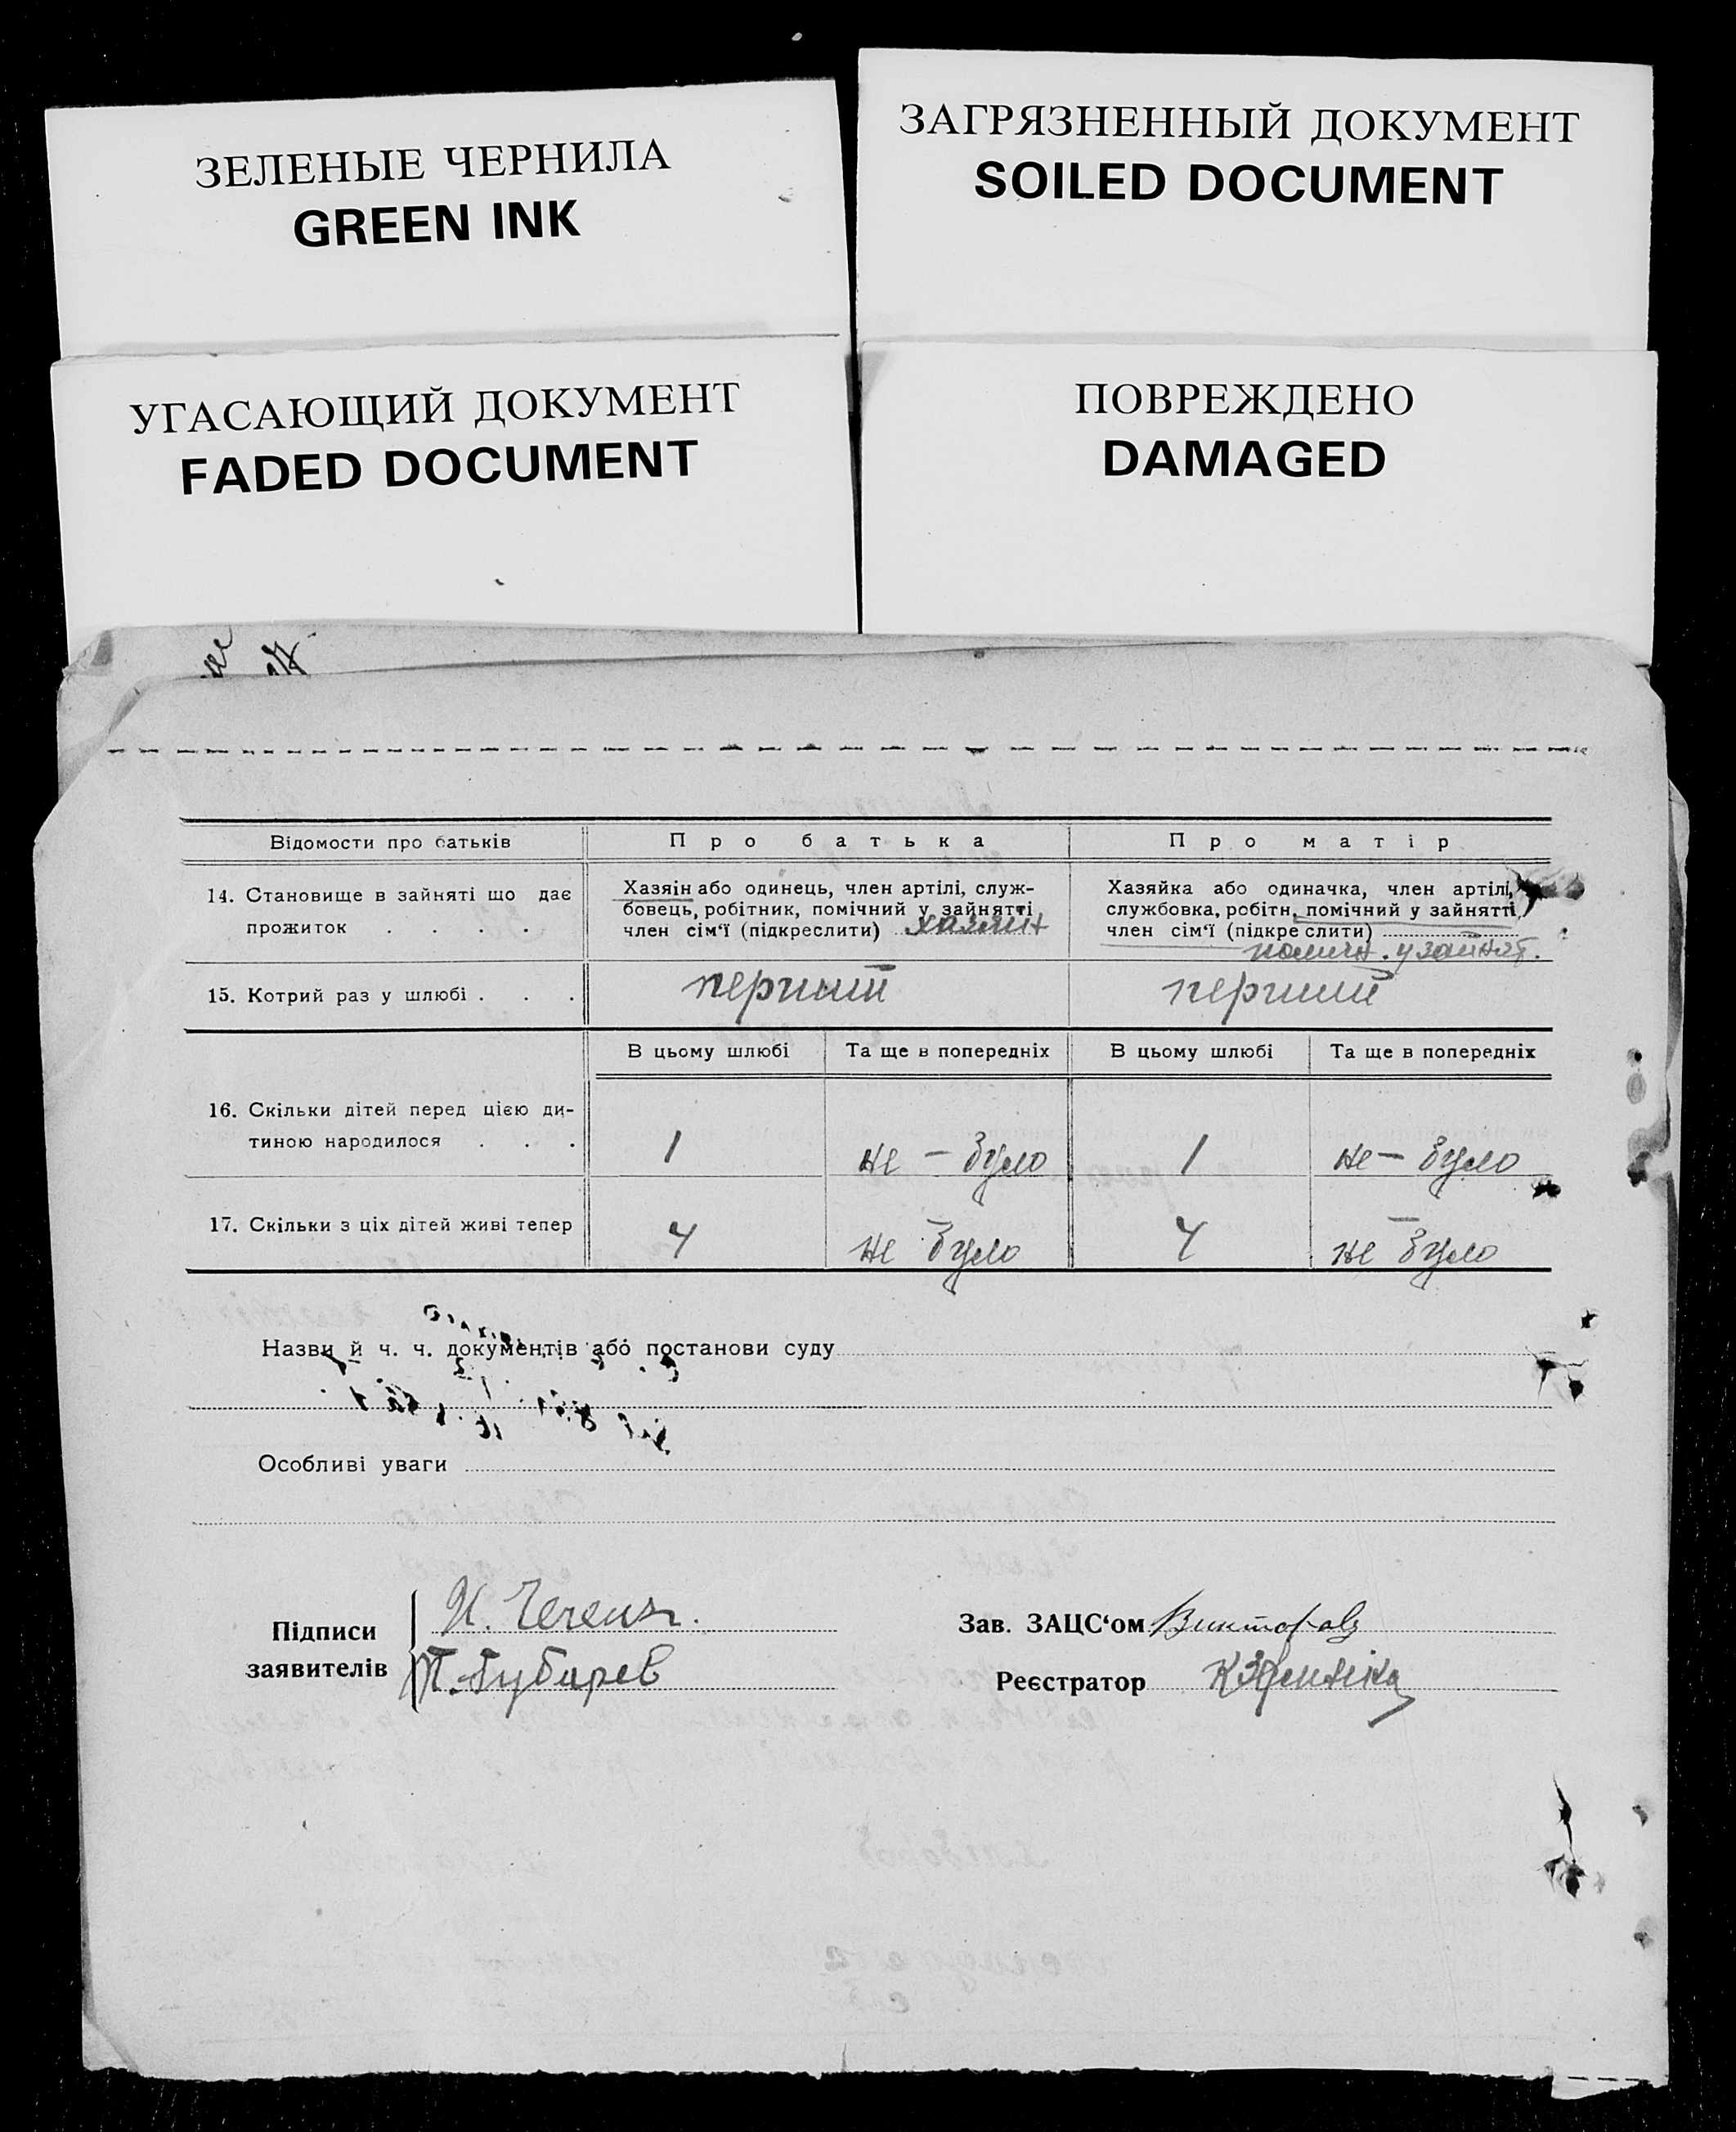 ЗЕЛЕНЫЕ ЧЕРНИЛА
GREEN INK
ЗАГРЯЗНЕННЫЙ ДОКУМЕНТ
SOILED DOCUMENT
УГАСАЮЩИЙ ДОКУМЕНТ
FADED DOCUMENT
ПОВРЕЖДЕНО
DAMAGED
Відомости про батьків
Про батька
Про матір
14. Становище в зайняті що дає
прожиток . . . .
Хазяін або одинець, член артілі, служ-
бовець, робітник, помічний у зайнятті
член сім'ї (підкреслити) хазяин
Хазяйка або одиначка, член артілі,
службовка, робітн, помічний у зайнятті,
член сім'ї (підкре слити)
помічн. у зайнят.
15. Котрий раз у шлюбі . . .
перший
перший
В цьому шлюбі
Та ще в попередніх
В цьому шлюбі
Та ще в попередніх
16. Скільки дітей перед цією ди-
тиною народилося . . .
1
не - було
1
не - було
17. Скільки з ціх дітей живі тепер
4
не було
4
не було
Назви й ч. ч. документів або постанови суду
Особливі уваги
Підписи
заявителів
Т. Губарев
Зав. ЗАЦС'ом
Реєстратор